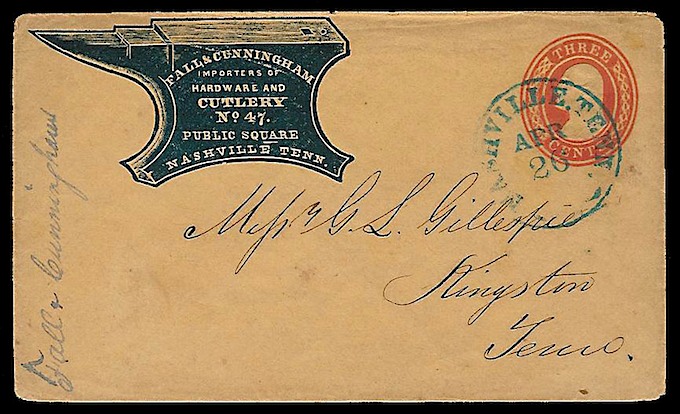 FALL & CUNNINGHAM
IMPORTERS OF
HARDWARE AND
CUTLERY
No 47.
PUBLIC SQUARE
NASHVILLE TENN.
THREE
CENTS
NASHVILLE, TENN.
APR
20
Messrs G. L. Gillespie
Kingston
Tenn.
Fall & Cunningham